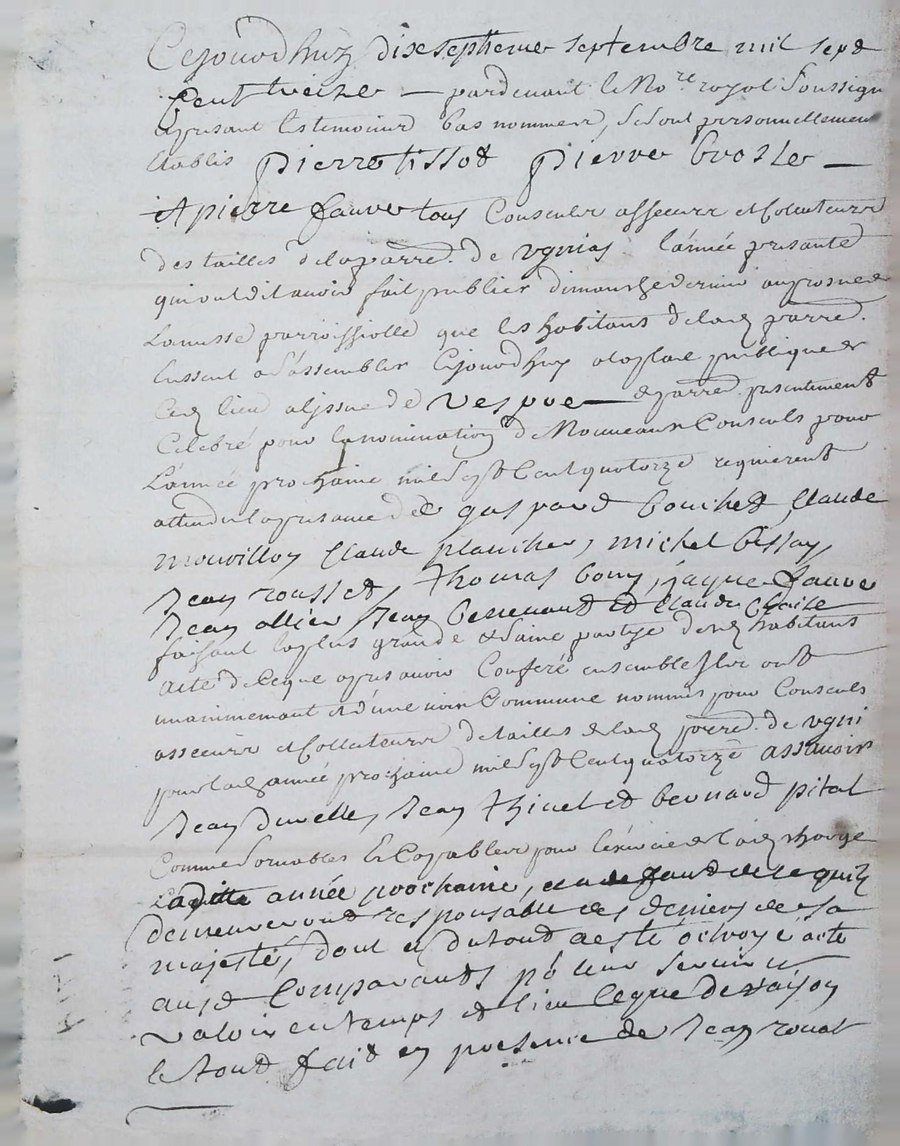 Cejourdhuy dixseptieme septembre mil sept
Cent treize — pardevant le No.re royal Soussign
et presant les temoins bas nommez, se sont personnellement
Establis pierre tissot pierre brosse —
et pierre fauve tous Consculs asseeurs et Collecteurs
des tailles de la parre. de vgnias l'année presante
qui ont dit avoir fait publier dimanche dernier au prosne de
La messe parroissialle que les habitans de lad parre.
Eussent a s'assembler Cejourdhuy a la place publique de
Ced lieu a l'issue de vespre — parre. presentement
Celebré pour la nomination de Nouveaux Consculs pour
L'année prochaine mil sept Cent quatorze requierent
attendu la presance de gaspard bouchet, Claude
mourillon Claude planche, michel bissay,
Jean rousset, thomas bony, jaque fauve
Jean ollier Jean et Claude Claise
faisant la plus grande et saine partye desd habitans
acte de Ceque apres avoir Conferé ensemble Ils ont
unanimemant et d'une voix Commune nommés pour Consculs
asseeurs et Collecteurs de tailles de lad parre. de vgni
pour lad année prochaine mil sept Cent quatorze assavoir
Jean duvelle, Jean thinet et bernard pitat
Comme solvables et Capables pour l'exercice de lad charge
Laditte année prochaine, et a deffaud de ce quilz
demeureront responsable des deniers de sa
majesté, dont et du tout a esté octroyé acte
ausd Comparants po leur servir et
valoir en temps et lieu Ceque de raison
le tout fait en presence de Jean rouat